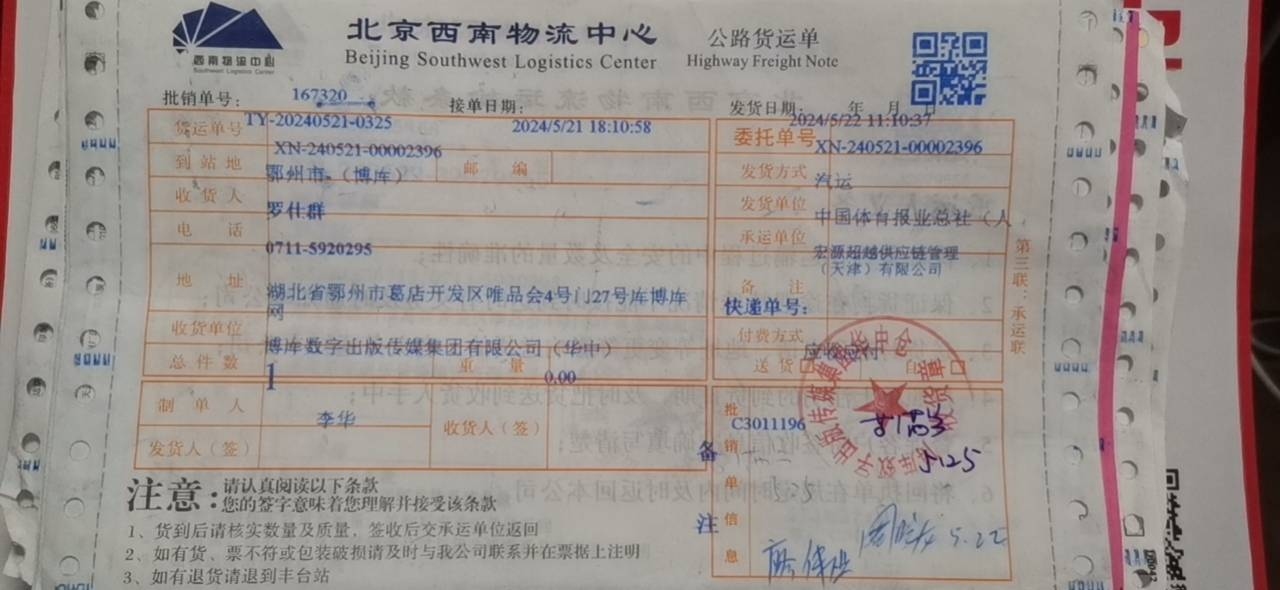 北京西南物流中心
公路货运单
西南物流中心
Southwest Logistics Center
Beijing Southwest Logistics Center
Highway Freight Note
批销单号: 167320
接单日期:
发货日期: 年 月 日
货运单号 TY-20240521-0325 2024/5/21 18:10:58
2024/5/22 11:10:37
委托单号 XN-240521-00002396
XN-240521-00002396
到站地 鄂州市-(博库) 邮编
发货方式 汽运
收货人 罗仕群
发货单位 中国体育报业总社(人
电话 0711-5920295
承运单位 宏源超越供应链管理
(天津)有限公司
地址 湖北省鄂州市葛店开发区唯品会4号门27号库博库
网
备注
快递单号:
收货单位 博库数字出版传媒集团有限公司(华中)
付费方式
总件数 1 重量 0.00
送货 自
制单人 李华
收货人(签)
发货人(签)
批销单信息
C3011196
备注
5.22
第三联:承运联
收货章
注意:
请认真阅读以下条款
您的签字意味着您理解并接受该条款
1、货到后请核实数量及质量,签收后交承运单位返回
2、如有货、票不符或包装破损请及时与我公司联系并在票据上注明
3、如有退货请退到丰台站